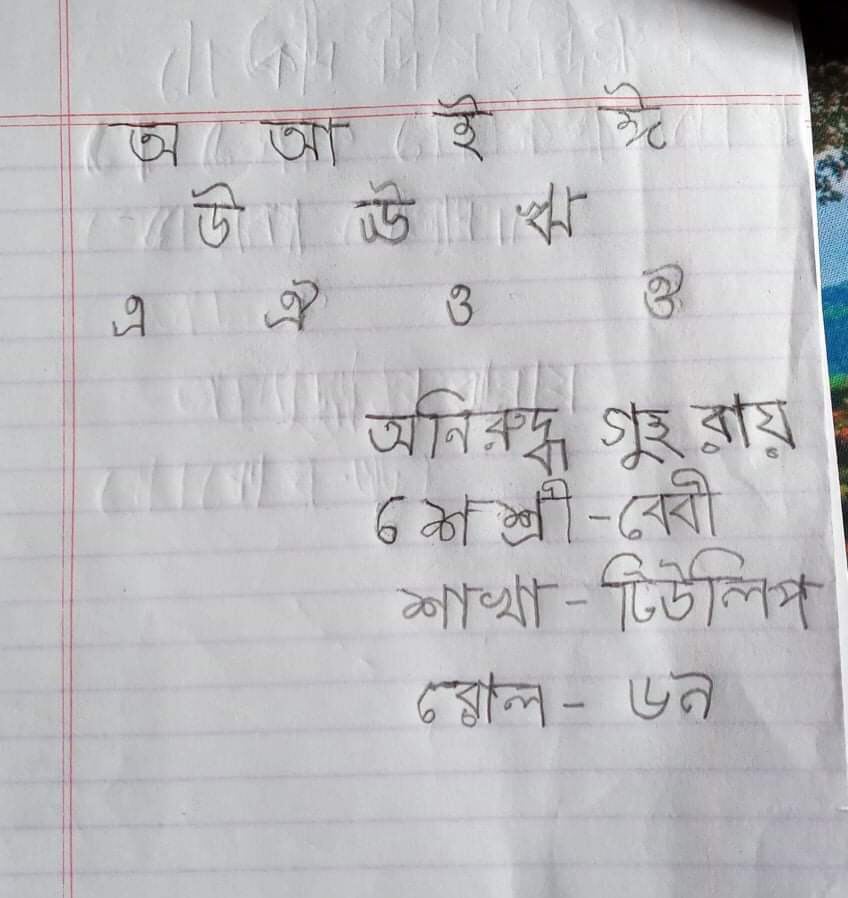 অ আ ই ঈ
উ ঊ ঋ
এ ঐ ও ঔ
অনিরুদ্ধ গুহ রায়
শেশ্রী - বেবী
শাখা - টিউলিপ
রোল - ডন